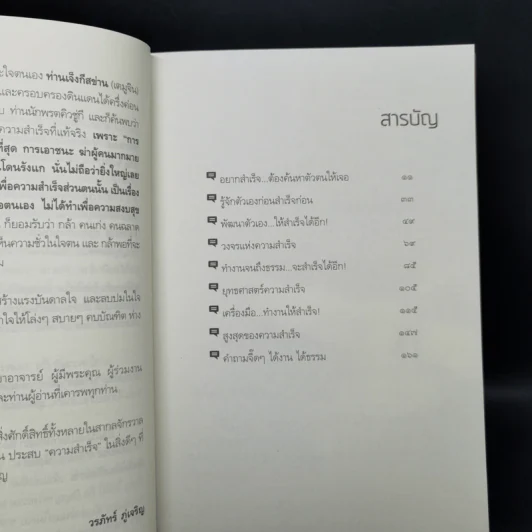 ะใจตนเอง ท่านเจ็งกีสข่าน (เตมูจิน)
และครอบครองดินแดนได้ครึ่งค่อน
ท่านนักพรตคิวชู่กี และก็ค้นพบว่า
ความสำเร็จที่แท้จริง เพราะ "การ
ที่สุด การเอาชนะ ฆ่าผู้คนมากมาย
โดนรังแก นั่นไม่ถือว่ายิ่งใหญ่เลย
เพื่อความสำเร็จส่วนตนนั้น เป็นเรื่อง
ตนเอง ไม่ได้ทำเพื่อความสงบสุข
ก็ยอมรับว่า กล้า คนเก่ง คนฉลาด
ห็นความชั่วในใจตน และ กล้าพอที่จะ
ร้างแรงบันดาลใจ และลบปมในใจ
ใจให้โล่งๆ สบายๆ คบบัณฑิต ห่าง
าอาจารย์ ผู้มีพระคุณ ผู้ร่วมงาน
ละท่านผู้อ่านที่เคารพทุกท่าน
สิ่งศักดิ์สิทธิ์ทั้งหลายในสากลจักรวาล
น ประสบ "ความสำเร็จ" ในสิ่งดีๆ ที่
ญ
วรภัทร์ ภู่เจริญ
สารบัญ
อยากสำเร็จ...ต้องค้นหาตัวตนให้เจอ ๑๑
รู้จักตัวเองก่อนสำเร็จก่อน ๓๓
พัฒนาตัวเอง...ให้สำเร็จได้อีก! ๔๙
วงจรแห่งความสำเร็จ ๖๙
ทำงานจนถึงธรรม...จะสำเร็จได้อีก! ๘๕
ยุทธศาสตร์ความสำเร็จ ๑๐๕
เครื่องมือ...ทำงานให้สำเร็จ! ๑๑๕
สูงสุดของความสำเร็จ ๑๔๗
คำถามจี๊ดๆ ได้งาน ได้ธรรม ๑๖๑